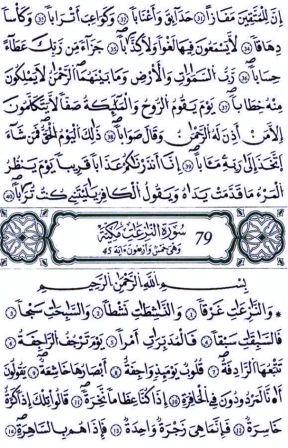 إِنَّ لِلْمُتَّقِينَ مَفَازًا ۝٣١ حَدَآئِقَ وَأَعْنَابًا ۝٣٢ وَكَوَاعِبَ أَتْرَابًا ۝٣٣ وَكَأْسًا
دِهَاقًا ۝٣٤ لَا يَسْمَعُونَ فِيهَا لَغْوًا وَلَا كِذَّابًا ۝٣٥ جَزَآءً مِنْ رَبِّكَ عَطَآءً
حِسَابًا ۝٣٦ رَبِّ السَّمٰوَاتِ وَالْأَرْضِ وَمَا بَيْنَهُمَا الرَّحْمٰنِ لَا يَمْلِكُونَ
مِنْهُ خِطَابًا ۝٣٧ يَوْمَ يَقُومُ الرُّوحُ وَالْمَلٰٓئِكَةُ صَفًّا لَا يَتَكَلَّمُونَ
إِلَّا مَنْ أَذِنَ لَهُ الرَّحْمٰنُ وَقَالَ صَوَابًا ۝٣٨ ذٰلِكَ الْيَوْمُ الْحَقُّ فَمَنْ شَآءَ
اتَّخَذَ إِلَىٰ رَبِّهِ مَآبًا ۝٣٩ إِنَّآ أَنْذَرْنَاكُمْ عَذَابًا قَرِيبًا يَوْمَ يَنْظُرُ
الْمَرْءُ مَا قَدَّمَتْ يَدَاهُ وَيَقُولُ الْكَافِرُ يَا لَيْتَنِي كُنْتُ تُرَابًا ۝٤٠
79 سُورَةُ النَّازِعَاتِ مَكِّيَّةٌ
وَهِيَ خَمْسٌ وَأَرْبَعُونَ آيَةً 45
بِسْمِ اللّٰهِ الرَّحْمٰنِ الرَّحِيمِ
وَالنَّازِعَاتِ غَرْقًا ۝١ وَالنَّاشِطَاتِ نَشْطًا ۝٢ وَالسَّابِحَاتِ سَبْحًا ۝٣
فَالسَّابِقَاتِ سَبْقًا ۝٤ فَالْمُدَبِّرَاتِ أَمْرًا ۝٥ يَوْمَ تَرْجُفُ الرَّاجِفَةُ ۝٦
تَتْبَعُهَا الرَّادِفَةُ ۝٧ قُلُوبٌ يَوْمَئِذٍ وَاجِفَةٌ ۝٨ أَبْصَارُهَا خَاشِعَةٌ ۝٩ يَقُولُونَ
أَئِنَّا لَمَرْدُودُونَ فِي الْحَافِرَةِ ۝١٠ أَئِذَا كُنَّا عِظَامًا نَخِرَةً ۝١١ قَالُوا تِلْكَ إِذًا كَرَّةٌ
خَاسِرَةٌ ۝١٢ فَإِنَّمَا هِيَ زَجْرَةٌ وَاحِدَةٌ ۝١٣ فَإِذَا هُمْ بِالسَّاهِرَةِ ۝١٤